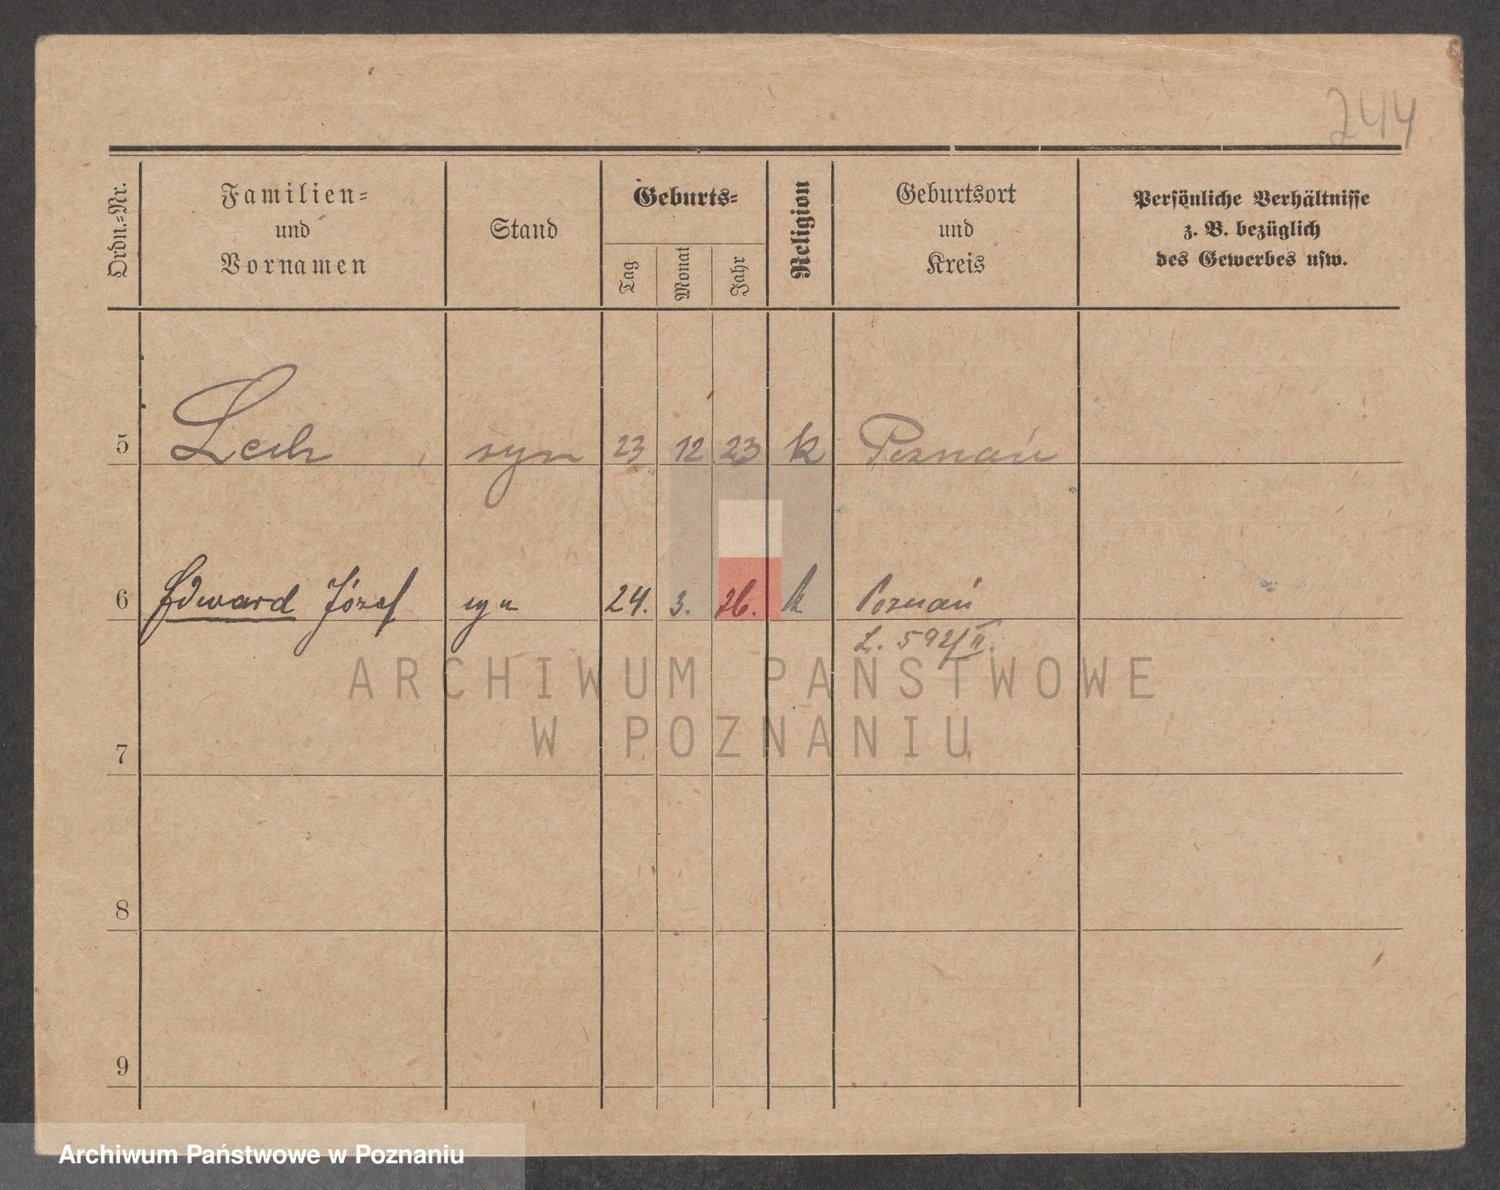 244
Ordn.=Nr.
Familien=
und
Vornamen
Stand
Geburts=
Tag
Monat
Jahr
Religion
Geburtsort
und
Kreis
Persönliche Verhältnisse
z. B. bezüglich
des Gewerbes usw.
5 Lech syn 23 12 23 k Poznań
6 Edward Józef syn 24. 3. 26. k Poznań
L. 592/II.
ARCHIWUM PAŃSTWOWE
W POZNANIU
7
8
9
Archiwum Państwowe w Poznaniu